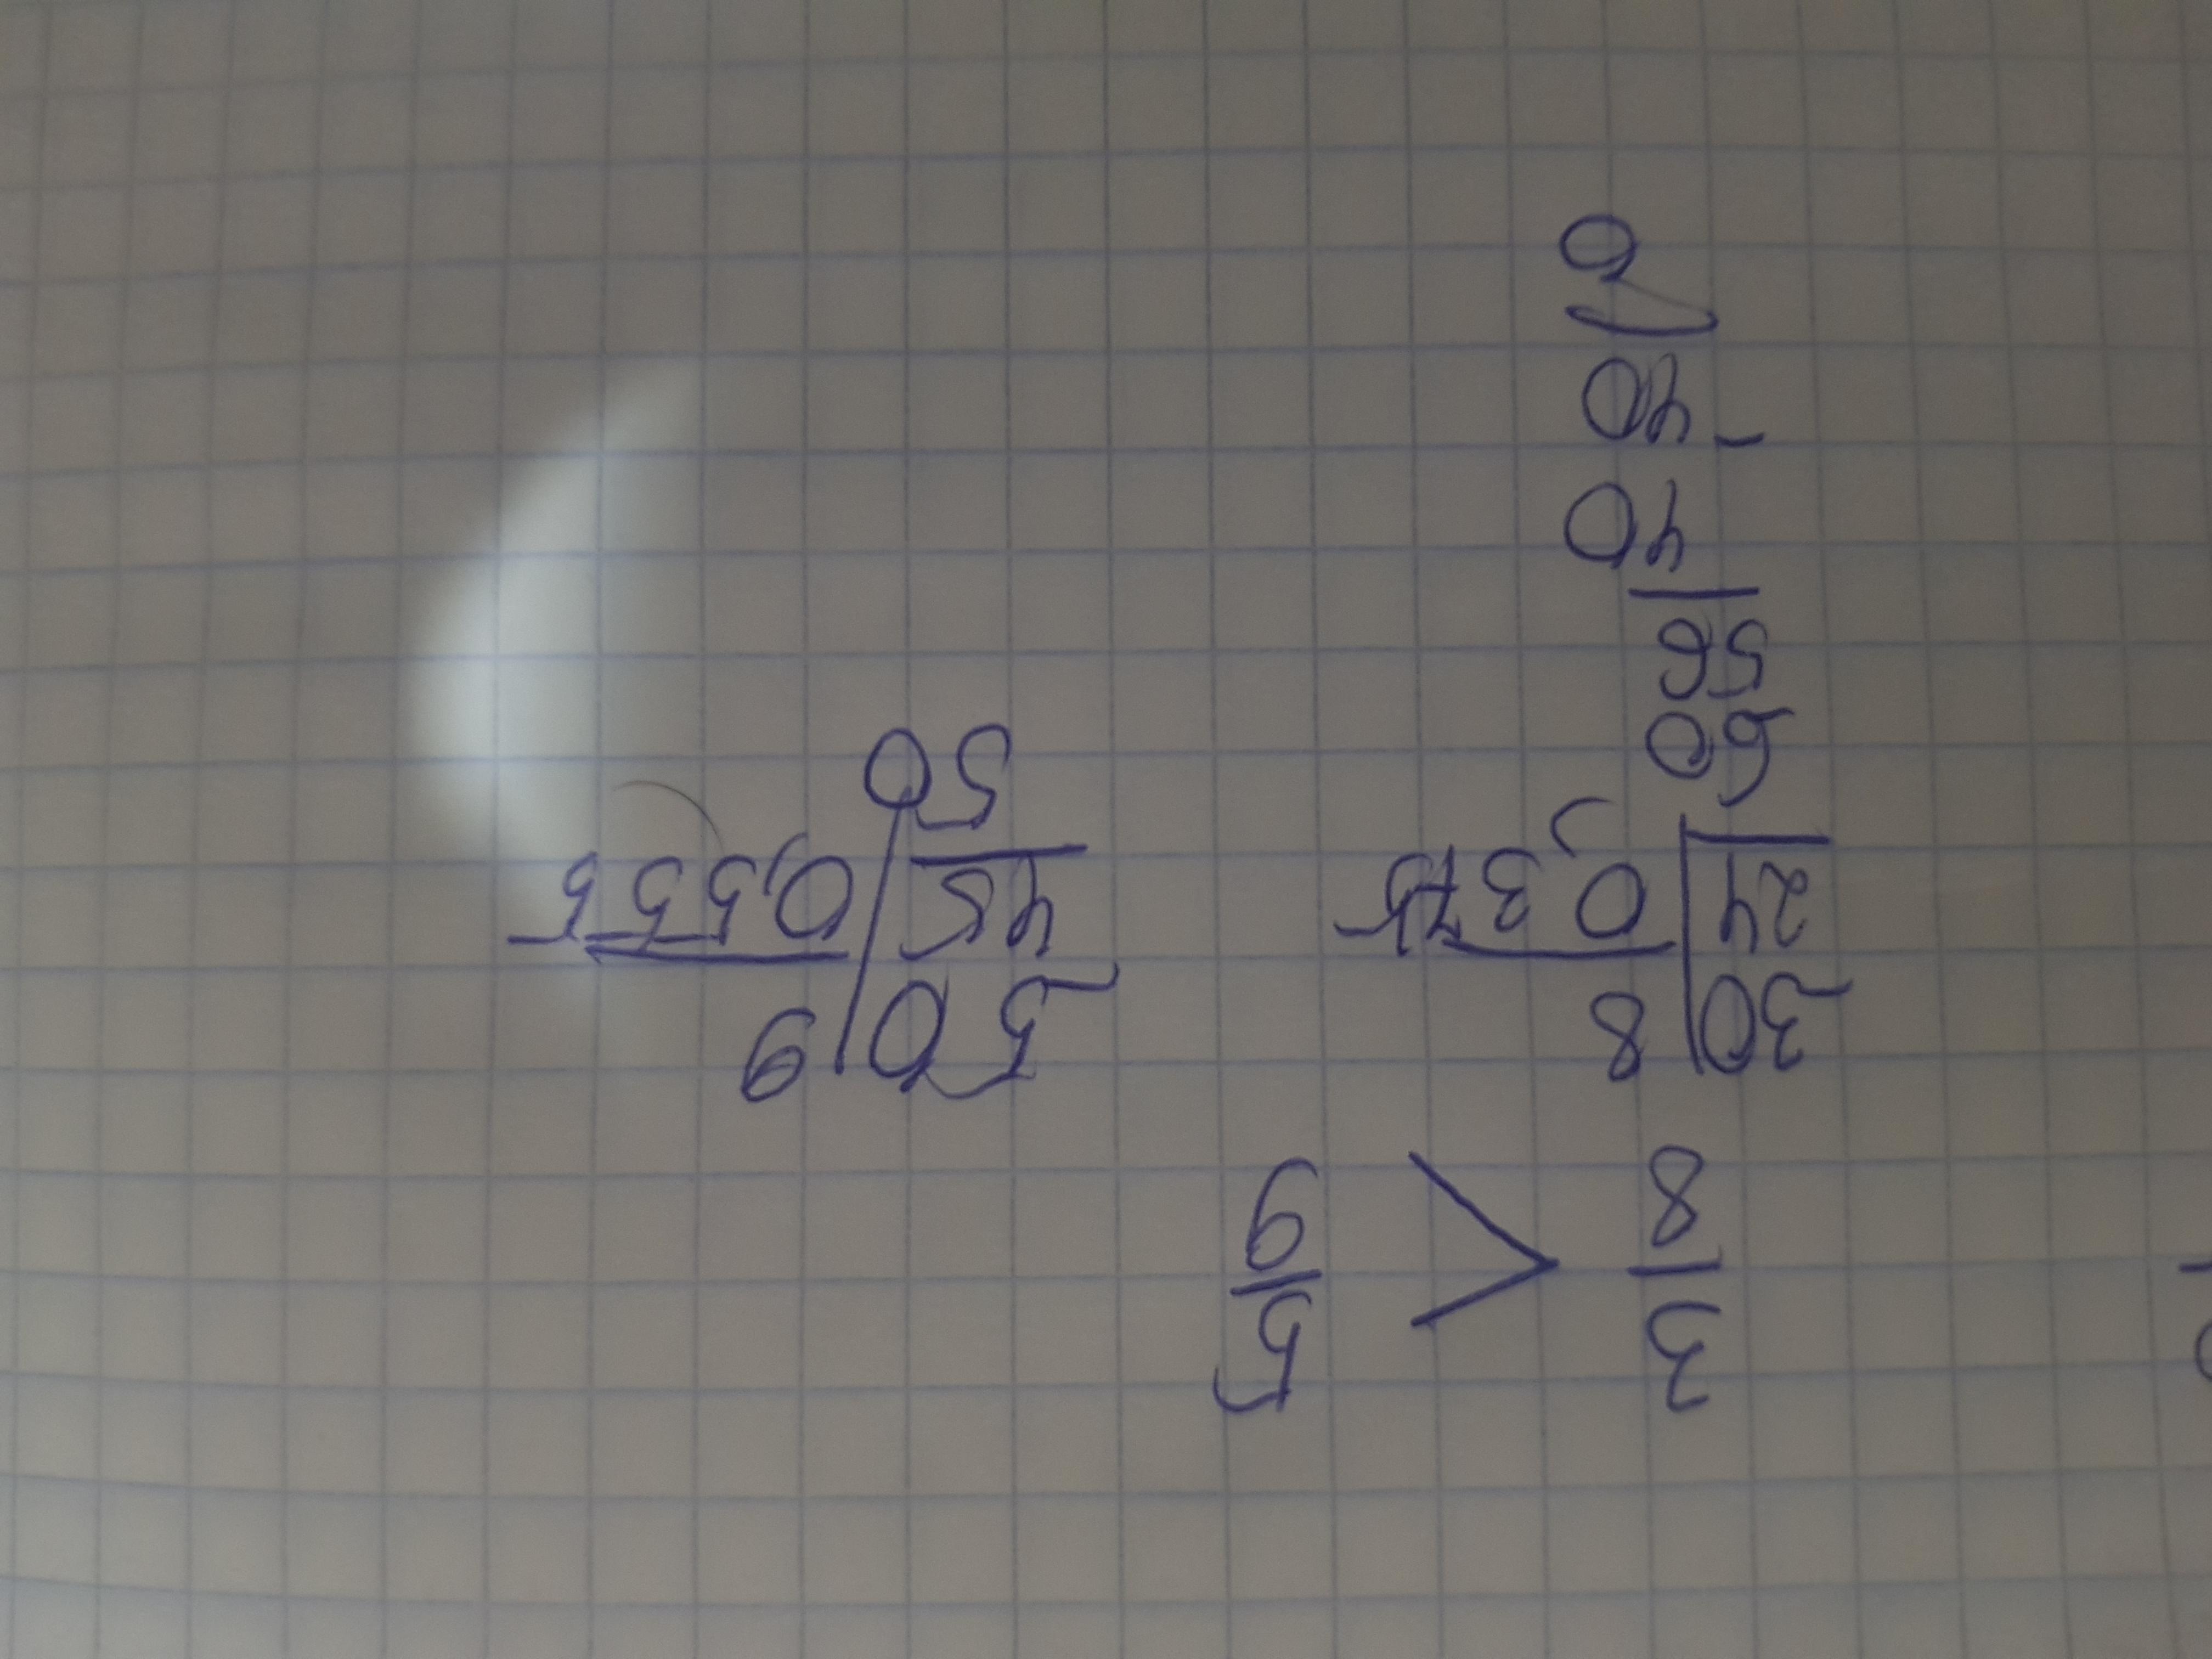 3/8 < 5/9
-30 | 8
24 | 0,375
60
56
40
-40
0
-50 | 9
45 | 0,555
50